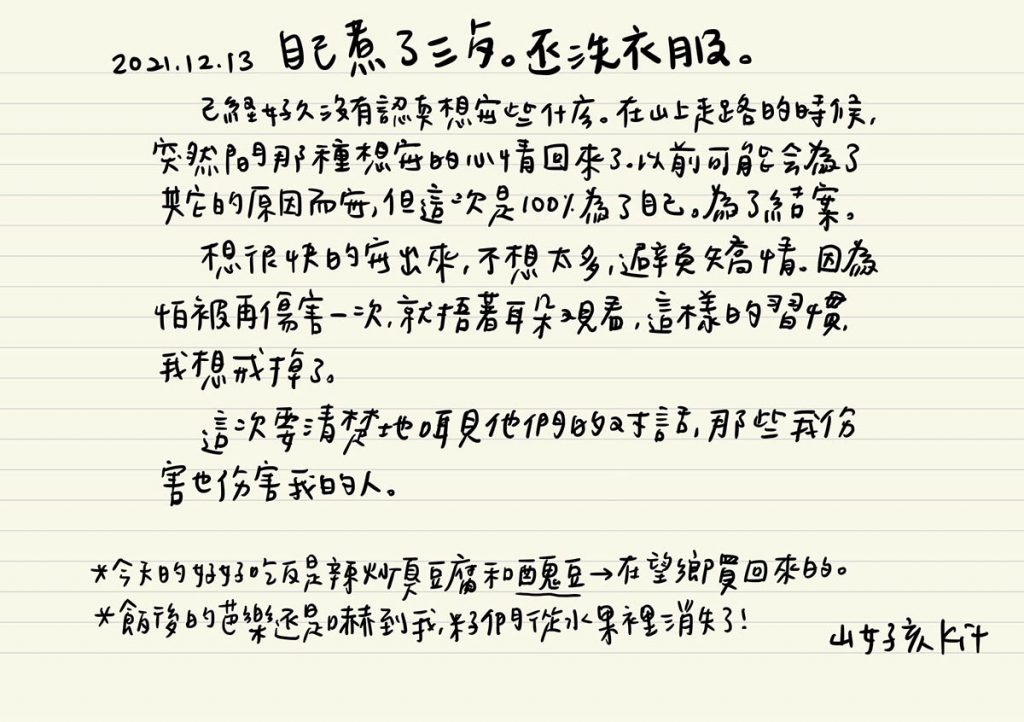 2021.12.13 自己煮了三歺。还洗衣服。
已經好久沒有認真想寫些什麼。在山上走路的時候,
突然間那種想寫的心情回來了.以前可能会為了
其它的原因而寫,但這次是100%為了自己。為了結案。
想很快的寫出來,不想太多,避免矯情。因為
怕被再傷害一次,就捂著耳朵观看,這樣的習慣,
我想戒掉了。
這次要清楚地咡見他們的对話,那些我伤
害也伤害我的人。
*今天的好好吃饭是辣炒臭豆腐和醜豆→在望鄉買回來的。
*飯後的芭樂还是嚇到我,籽們從水果裡消失了!
山女孩Kit